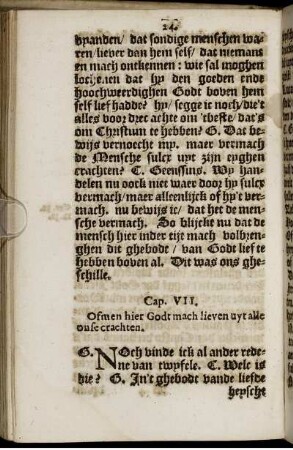 24.
vyanden/ dat sondige menschen wa-
ren/ liever dan hem self/ dat niemans
en mach ontkennen: wie sal moghen
lochenen dat hy den goeden ende
hoochweerdighen Godt boven hem
self lief hadde? hy/ segge ic noch/ die't
alles voor drec achte om 'tbeste/ dat's
om Christum te hebben? G. Dat be-
wijs vernoecht my. maer vermach
de Mensche sulcx uyt zijn eyghen
crachten? C. Geenssins. Wy han-
delen nu oock niet waer door hy sulcx
vermach/ maer alleenlijck of hy't ver-
mach. nu bewijs ic/ dat het de men-
sche vermach. So blijckt nu dat de
mensch hier inder tijt mach volbren-
ghen dit ghebodt/ van Godt lief te
hebben boven al. Dit was ons ghe-
schille.
Cap. VII.
Ofmen hier Godt mach lieven uyt alle
onse crachten.
G. NOch vinde ick al ander rede-
ne van twyfele. C. Welc is
die? G. In't ghebodt vande liefde
heyscht